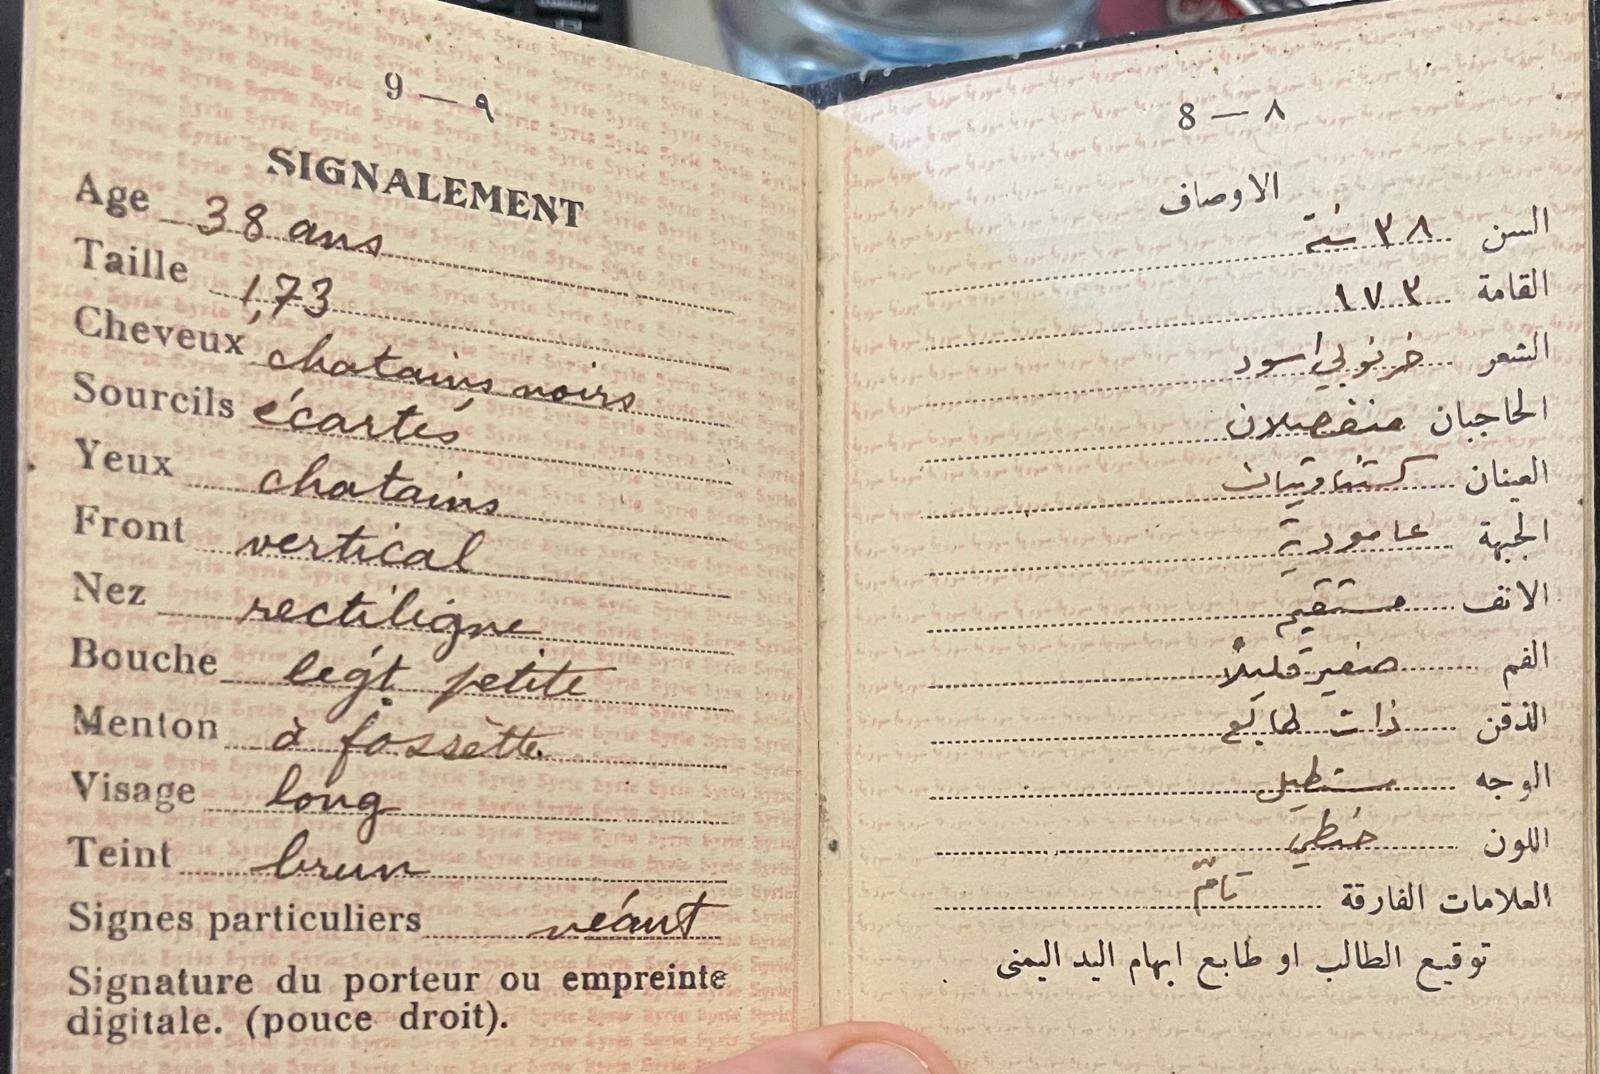 9 — ٩
SIGNALEMENT
Age 38 ans
Taille 1,73
Cheveux chatains noirs
Sourcils écartés
Yeux chatains
Front vertical
Nez rectiligne
Bouche légt petite
Menton à fossètte
Visage long
Teint brun
Signes particuliers néant
Signature du porteur ou empreinte
digitale. (pouce droit).
8 — ٨
الاوصاف
السن ٣٨ سنة
القامة ١٧٣
الشعر خرنوبي اسود
الحاجبان منفصلان
العينان كستناويتان
الجبهة عامودية
الانف مستقيم
الفم صغير قليلاً
الذقن ذات طابع
الوجه مستطيل
اللون حنطي
العلامات الفارقة
توقيع الطالب او طابع ابهام اليد اليمنى